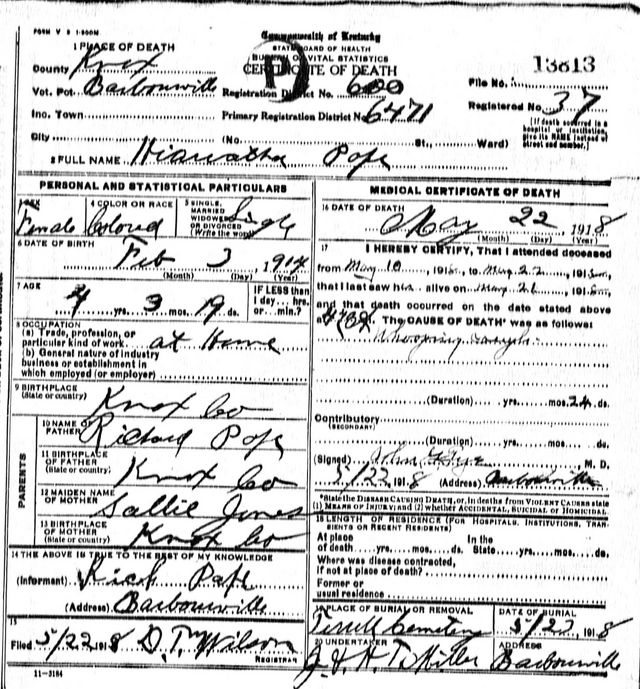 FORM V S 1-200M
Commonwealth of Kentucky
STATE BOARD OF HEALTH
BUREAU OF VITAL STATISTICS
CERTIFICATE OF DEATH
1 PLACE OF DEATH
County Knox
Vot. Pct. Barbourville Registration District No. 600 File No. 13813
Inc. Town Primary Registration District No. 6471 Registered No. 37
City (No. St., Ward) (If death occurred in a hospital or institution, give its NAME instead of street and number.)
2 FULL NAME Hiawatha Pope
PERSONAL AND STATISTICAL PARTICULARS
SEX Female
4 COLOR OR RACE Colored
5 SINGLE, MARRIED WIDOWED OR DIVORCED (Write the word) Single
6 DATE OF BIRTH
Feb 3 1914
(Month) (Day) (Year)
7 AGE
4 yrs. 3 mos. 19 ds.
IF LESS than 1 day... hrs. or... min.?
8 OCCUPATION
(a) Trade, profession, or particular kind of work at Home
(b) General nature of industry business or establishment in which employed (or employer)
9 BIRTHPLACE (State or country) Knox Co
PARENTS
10 NAME OF FATHER Richard Pope
11 BIRTHPLACE OF FATHER (State or country) Knox Co
12 MAIDEN NAME OF MOTHER Sallie Jones
13 BIRTHPLACE OF MOTHER (State or country) Knox Co
14 THE ABOVE IS TRUE TO THE BEST OF MY KNOWLEDGE
(Informant) Rich Pope
(Address) Barbourville
15
Filed 5/22 1918 D. T. Wilson
REGISTRAR
11-3184
MEDICAL CERTIFICATE OF DEATH
16 DATE OF DEATH
May 22 1918
(Month) (Day) (Year)
17 I HEREBY CERTIFY, That I attended deceased
from May 10, 1918, to May 22, 1918,
that I last saw her alive on May 21, 1918,
and that death occurred on the date stated above
at The CAUSE OF DEATH* was as follows:
Whooping Cough
(Duration) yrs. mos. 24 ds.
Contributory (SECONDARY)
(Duration) yrs. mos. ds.
(Signed) John M. D.
5/22 1918 (Address) Barbourville
*State the DISEASE CAUSING DEATH, or, in deaths from VIOLENT CAUSES state
(1) MEANS OF INJURY; and (2) whether ACCIDENTAL, SUICIDAL or HOMICIDAL
18 LENGTH OF RESIDENCE (FOR HOSPITALS, INSTITUTIONS, TRANSIENTS OR RECENT RESIDENTS)
At place of death yrs. mos. ds. In the State yrs. mos. ds.
Where was disease contracted,
if not at place of death?
Former or
usual residence
19 PLACE OF BURIAL OR REMOVAL Terrell Cemetery
DATE OF BURIAL 5/23, 1918
20 UNDERTAKER T. Miller
ADDRESS Barbourville